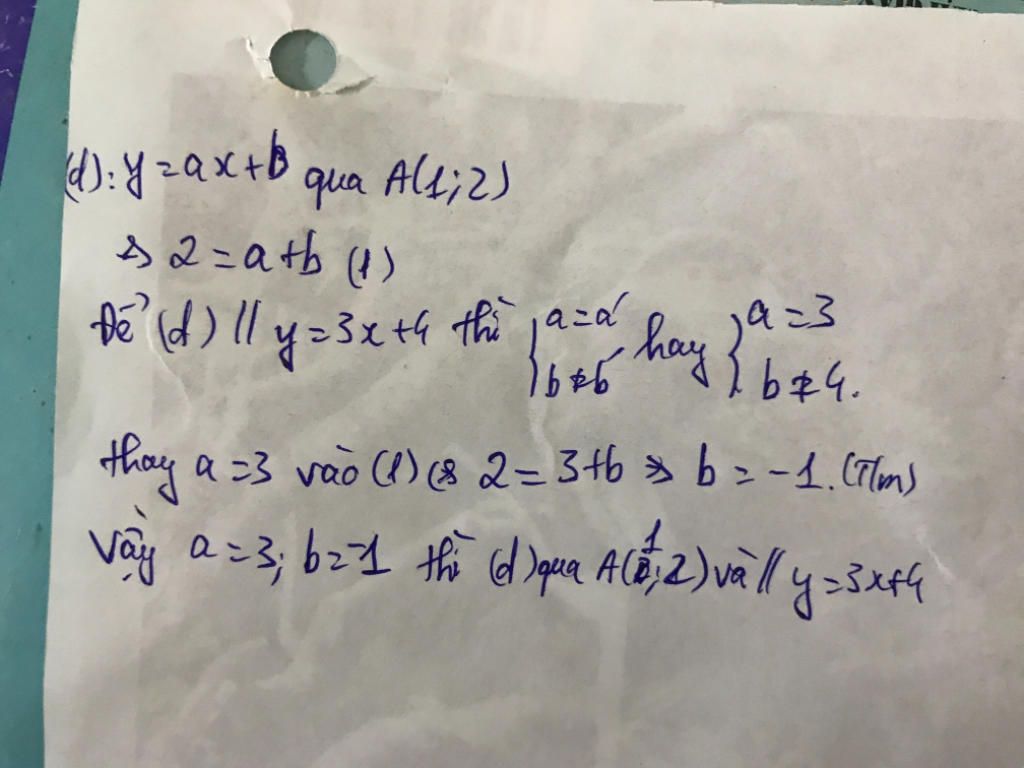 (d): y = ax + b qua A(1;2)
⇒ 2 = a + b (1)
Để (d) // y = 3x + 4 thì { a = a' b ≠ b' hay { a = 3 b ≠ 4.
thay a = 3 vào (1) ⇔ 2 = 3 + b ⇒ b = -1. (T/m)
Vậy a = 3; b = -1 thì (d) qua A(1;2) và // y = 3x + 4